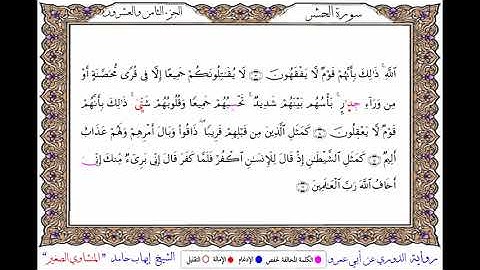 سورة الحشر
الجزء الثامن والعشرون
اللَّهِ ۚ ذَٰلِكَ بِأَنَّهُمْ قَوْمٌ لَّا يَفْقَهُونَ لَا يُقَٰتِلُونَكُمْ جَمِيعًا إِلَّا فِي قُرًى مُّحَصَّنَةٍ أَوْ
مِن وَرَآءِ جِدَٰرٍ ۚ بَأْسُهُم بَيْنَهُمْ شَدِيدٌ ۚ تَحْسِبُهُمْ جَمِيعًا وَقُلُوبُهُمْ شَتَّىٰ ۚ ذَٰلِكَ بِأَنَّهُمْ
قَوْمٌ لَّا يَعْقِلُونَ كَمَثَلِ الَّذِينَ مِن قَبْلِهِمْ قَرِيبًا ۖ ذَاقُوا وَبَالَ أَمْرِهِمْ وَلَهُمْ عَذَابٌ
أَلِيمٌ كَمَثَلِ الشَّيْطَٰنِ إِذْ قَالَ لِلْإِنسَٰنِ اكْفُرْ فَلَمَّا كَفَرَ قَالَ إِنِّي بَرِيٓءٌ مِّنكَ إِنِّيَ
أَخَافُ اللَّهَ رَبَّ الْعَٰلَمِينَ
رواية الدوري عن أبي عمرو
الكلمة المخالفة لحفص الإدغام الإمالة التقليل
الشيخ إيهاب حامد "المنشاوي الصغير"